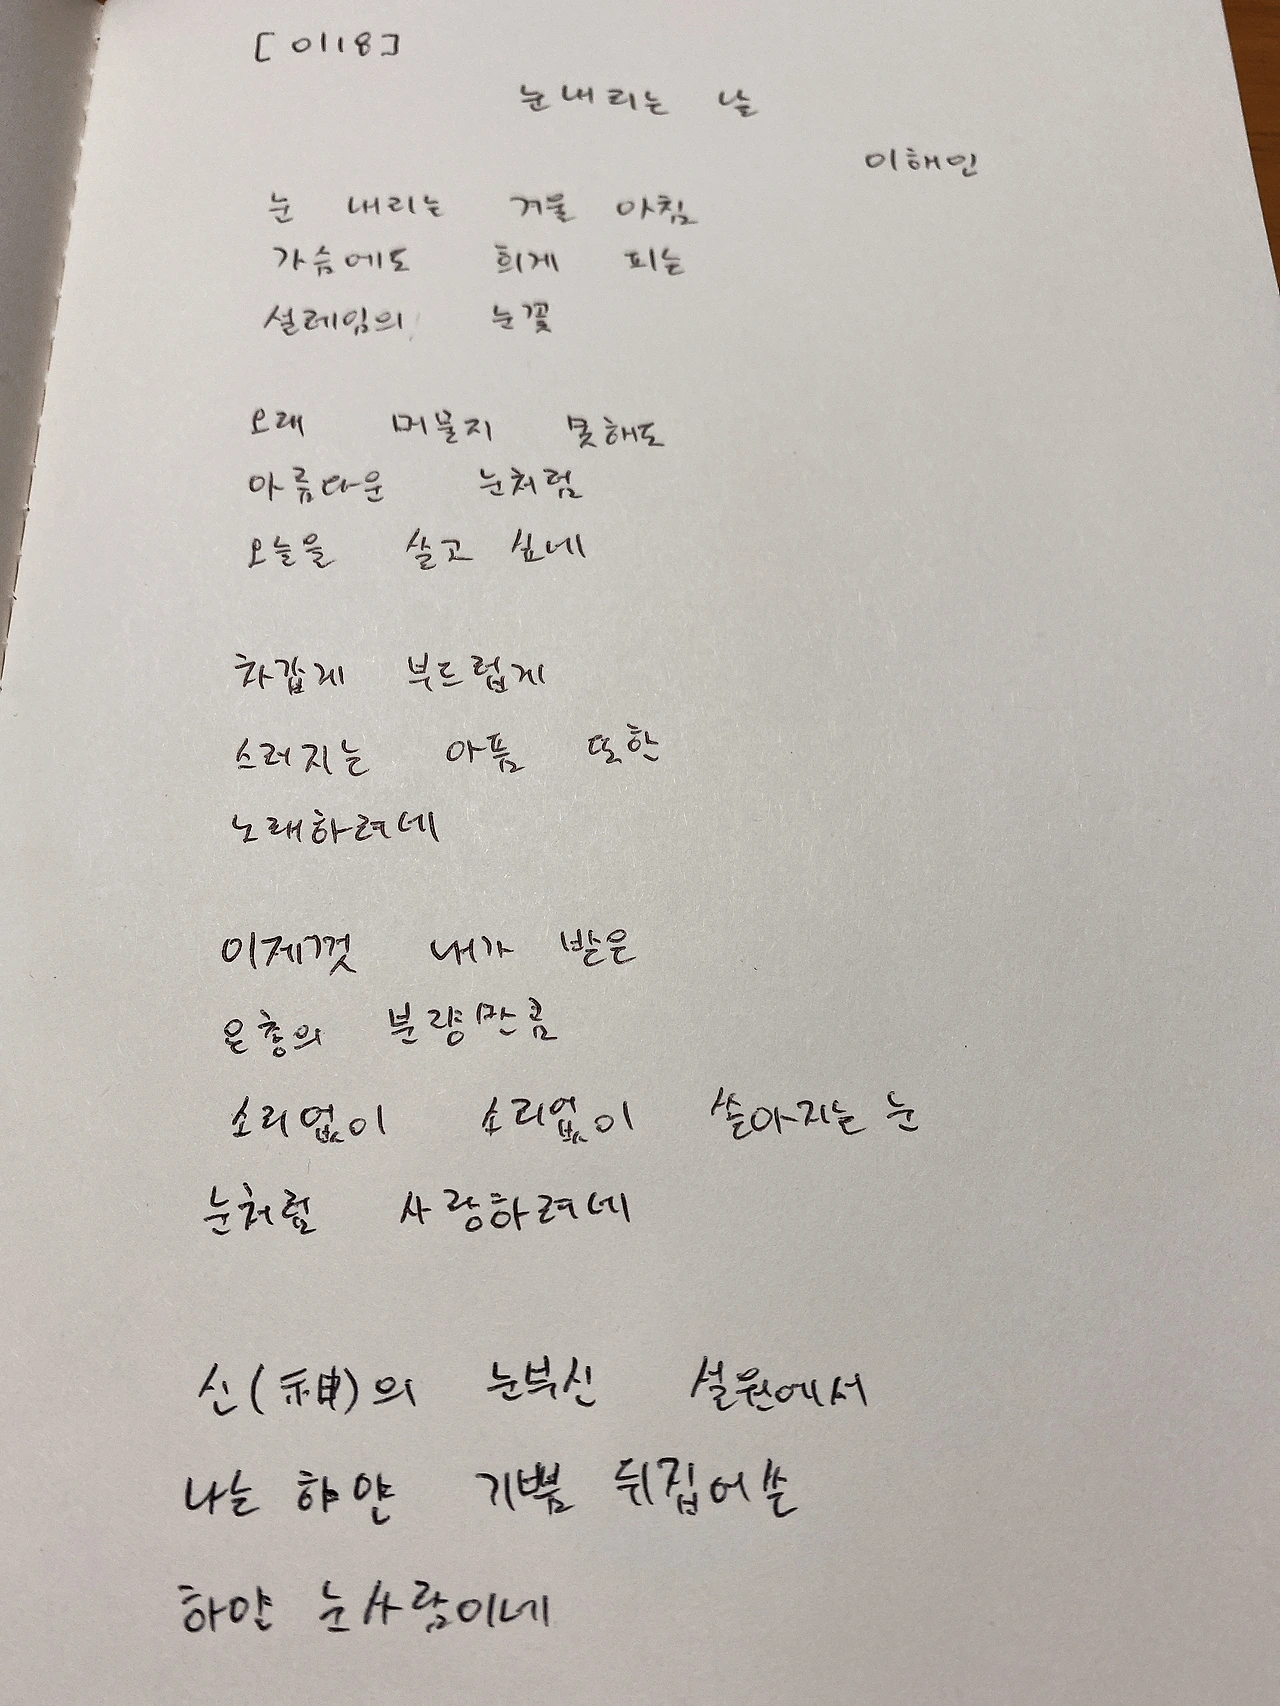 [0118]
눈 내리는 날
이해인
눈 내리는 겨울 아침
가슴에도 희게 피는
설레임의 눈꽃
오래 머물지 못해도
아름다운 눈처럼
오늘을 살고 싶네
차갑게 부드럽게
스러지는 아픔 또한
노래하려네
이제껏 내가 받은
은총의 분량만큼
소리없이 소리없이 쏟아지는 눈
눈처럼 사랑하려네
신(神)의 눈부신 설원에서
나는 하얀 기쁨 뒤집어쓴
하얀 눈사람이네